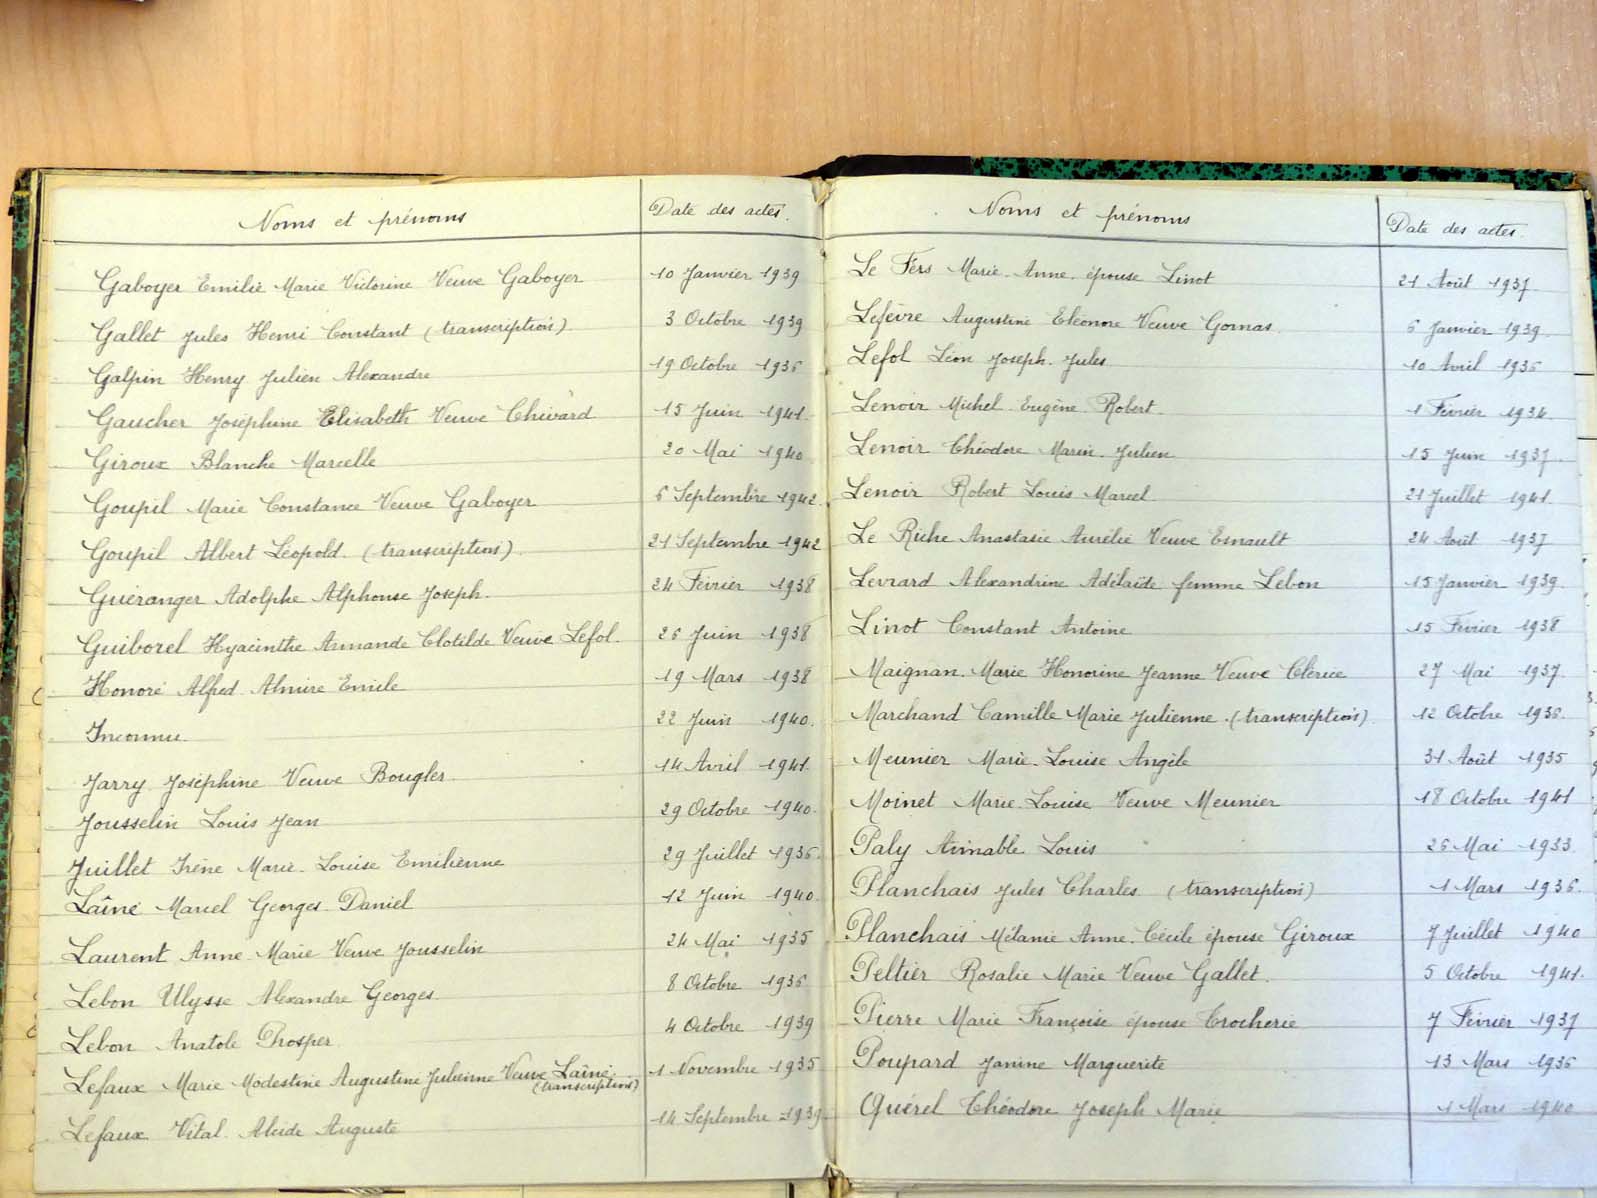 Noms et prénoms Date des actes.
Gaboyer Emilie Marie Victorine Veuve Gaboyer 10 Janvier 1939
Gallet Jules Henri Constant (transcription) 3 Octobre 1939
Galpin Henry Julien Alexandre 19 Octobre 1936
Gaucher Joséphine Elisabeth Veuve Chivard 15 Juin 1941.
Giroux Blanche Marcelle 20 Mai 1940
Goupil Marie Constance Veuve Gaboyer 6 Septembre 1942.
Goupil Albert Léopold (transcription) 21 Septembre 1942
Guéranger Adolphe Alphonse Joseph. 24 Février 1938
Guiborel Hyacinthe Armande Clotilde Veuve Lefol. 26 Juin 1938
Honoré Alfred Almire Emile 19 Mars 1938
Inconnu 22 Juin 1940.
Jarry Joséphine Veuve Bougler. 14 Avril 1941.
Jousselin Louis Jean 29 Octobre 1940.
Juillet Irène Marie-Louise Emilienne 29 Juillet 1936.
Laîné Marcel Georges Daniel 12 Juin 1940.
Laurent Anne-Marie Veuve Jousselin 24 Mai 1935
Lebon Ulysse Alexandre Georges 8 Octobre 1936
Lebon Anatole Prosper 4 Octobre 1939
Lefaux Marie Modestine Augustine Julienne Veuve Laîné. 1 Novembre 1935
(transcription)
Lefaux Vital Alcide Auguste 14 Septembre 1939
Noms et prénoms Date des actes.
Le Fers Marie-Anne épouse Linot 21 Août 1937
Lefèvre Augustine Eléonore Veuve Gornas 6 Janvier 1939.
Lefol Léon Joseph Jules 10 Avril 1936
Lenoir Michel Eugène Robert. 1 Février 1934.
Lenoir Théodore Marin Julien 15 Juin 1937.
Lenoir Robert Louis Marcel 21 Juillet 1941.
Le Riche Anastasie Aurélie Veuve Esnault 24 Août 1937
Levrard Alexandrine Adélaïde femme Lebon 15 Janvier 1939.
Linot Constant Antoine 15 Février 1938
Maignan Marie Honorine Jeanne Veuve Clérice 27 Mai 1937.
Marchand Camille Marie Julienne (transcription) 12 Octobre 1936.
Meunier Marie-Louise Angèle 31 Août 1935
Moinet Marie-Louise Veuve Meunier 18 Octobre 1941
Paly Aimable Louis 26 Mai 1933
Planchais Jules Charles (transcription) 1 Mars 1936.
Planchais Mélanie Anne Cécile épouse Giroux 7 Juillet 1940
Peltier Rosalie Marie Veuve Gallet. 5 Octobre 1941.
Pierre Marie Françoise épouse Crocherie 7 Février 1937
Poupard Janine Marguerite 13 Mars 1936
Quérel Théodore Joseph Marie 1 Mars 1940